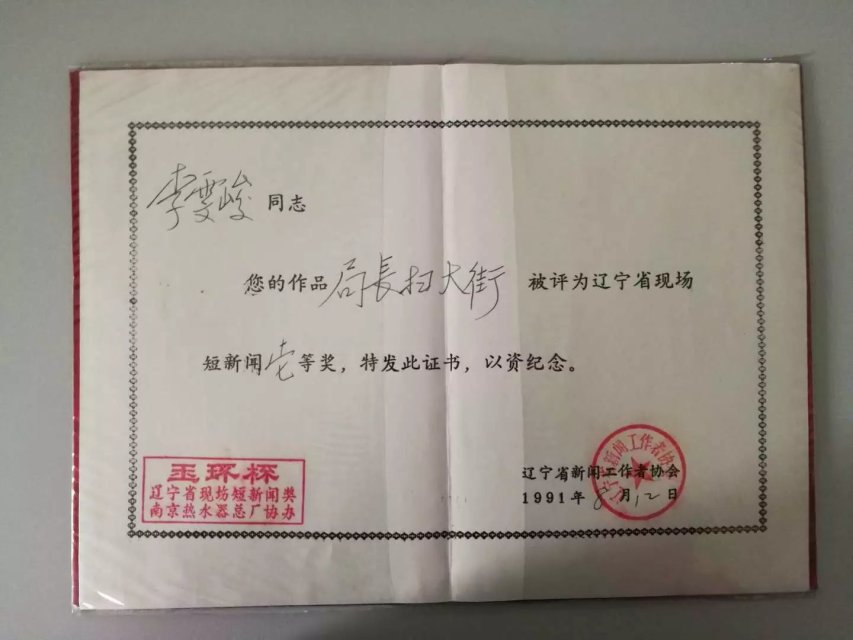 李雯峻同志
您的作品局長扫大街被评为辽宁省现场
短新闻壱等奖，特发此证书，以资纪念。
玉环杯
辽宁省现场短新闻奖
南京热水器总厂协办
辽宁省新闻工作者协会
1991年8月12日
辽宁省新闻工作者协会